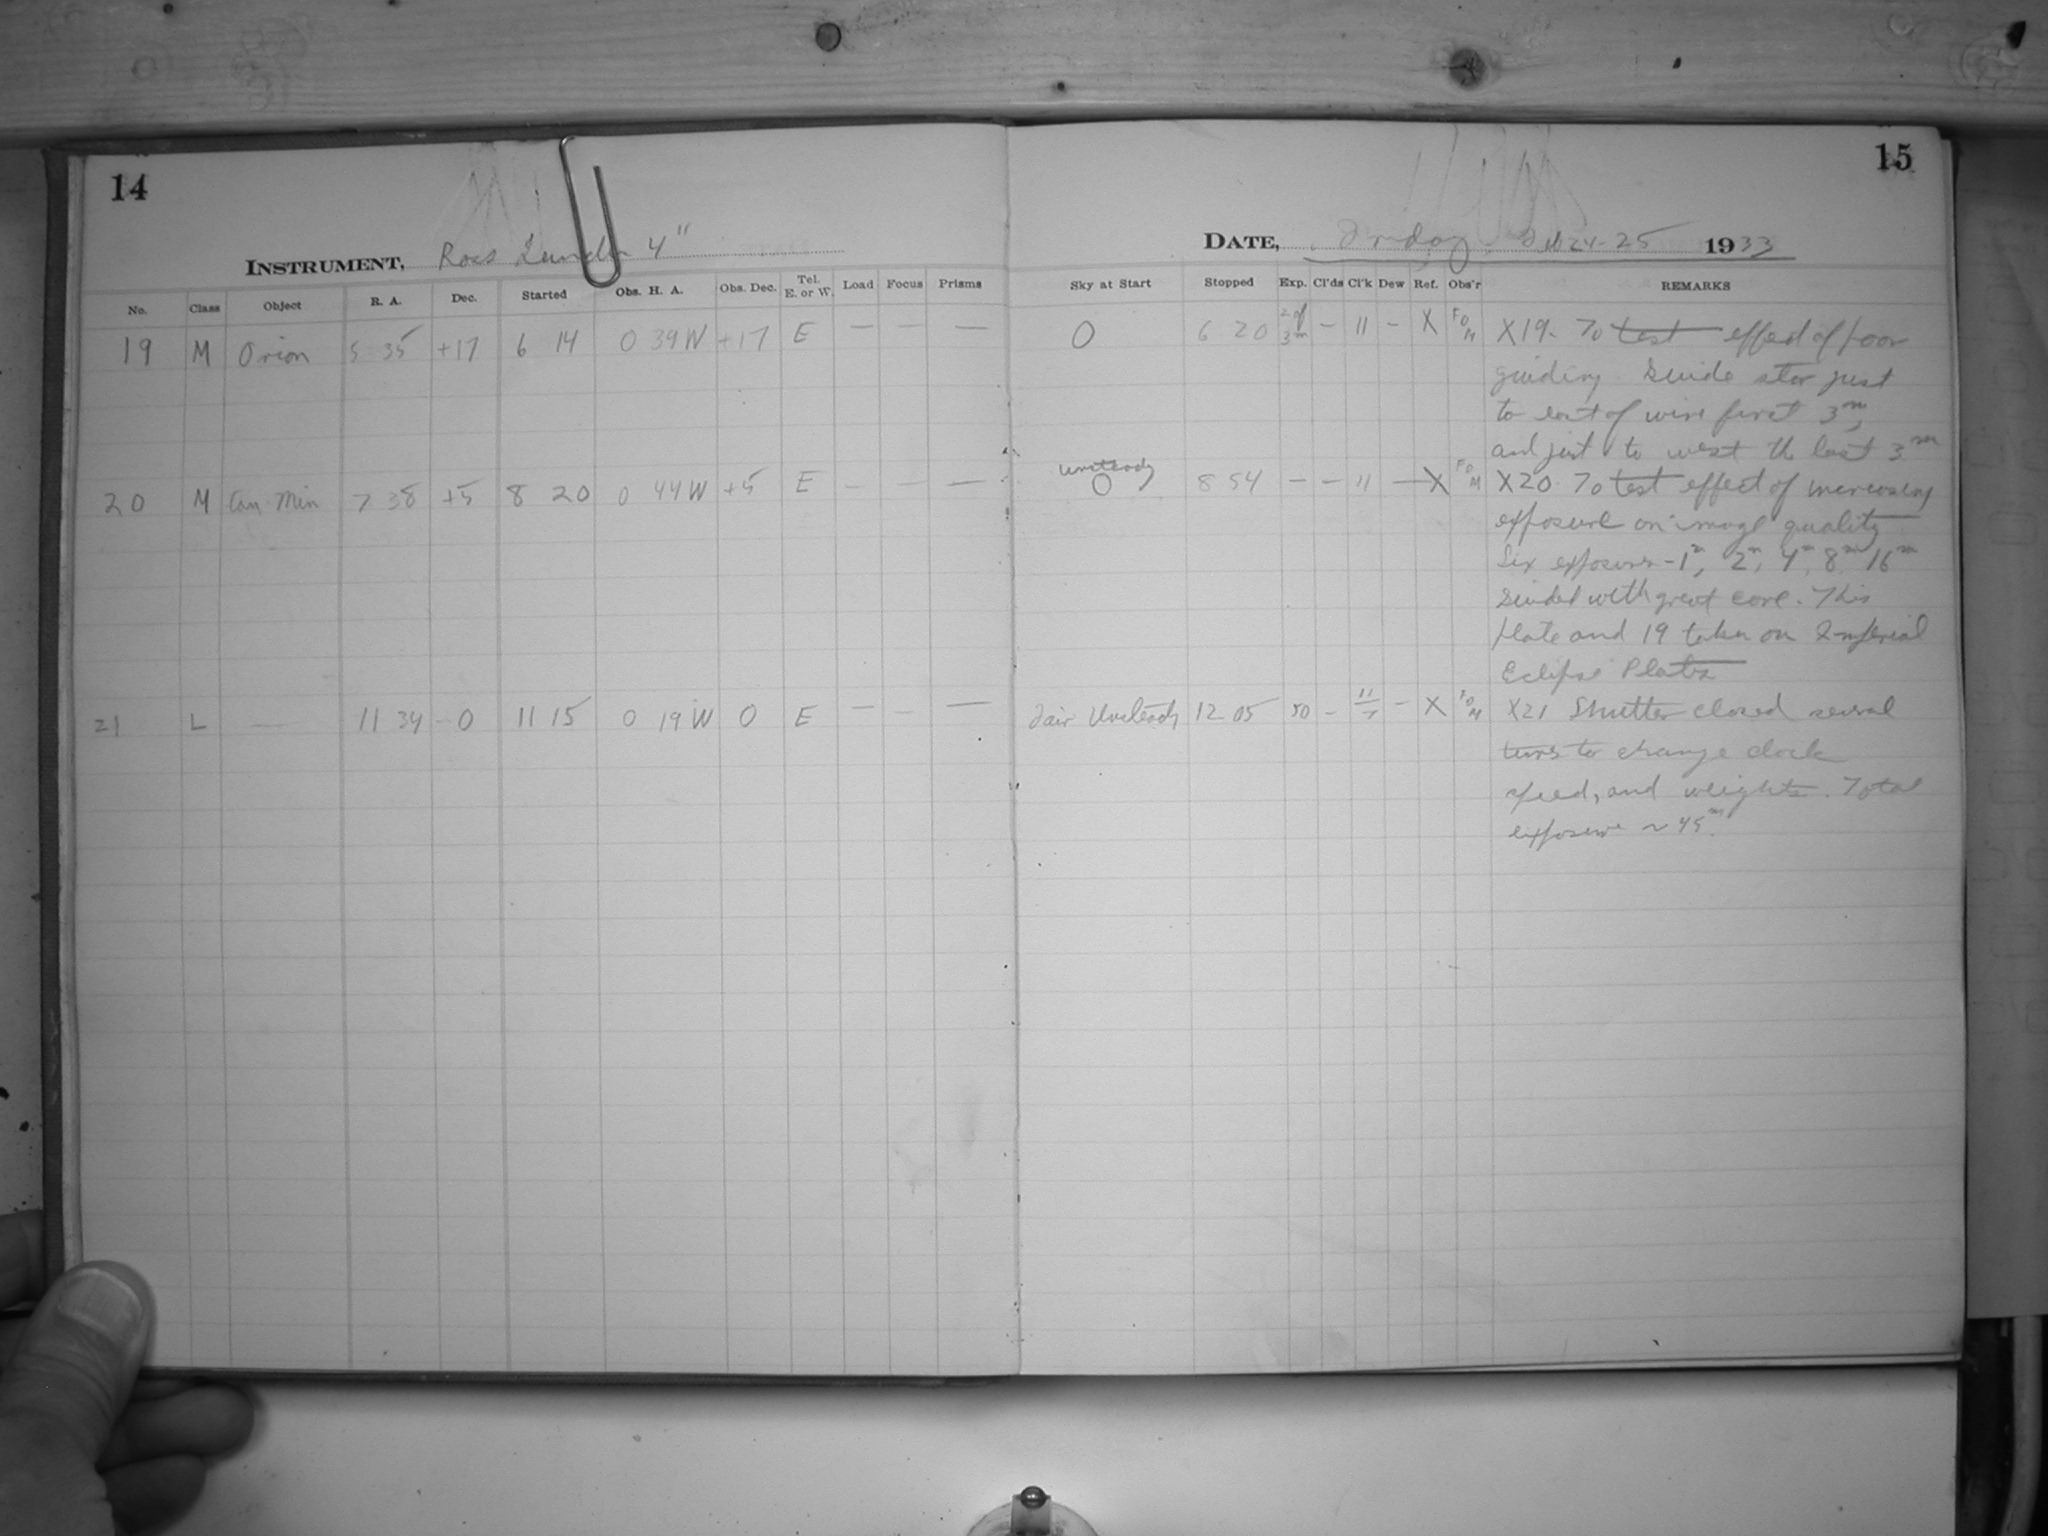 14
15
INSTRUMENT, Ross Lundin 4"
DATE, Friday Feb 24-25 1933
No. Class Object R. A. Dec. Started Obs. H. A. Obs. Dec. Tel. E. or W. Load Focus Prisms Sky at Start Stopped Exp. Cl'ds Cl'k Dew Ref. Obs'r REMARKS
19 M Orion 5 35 +17 6 14 0 39 W +17 E — — — O 6 20 2 of 3m – 11 – X X19- To test effect of poor
guiding. Guide star just
to east of wire first 3m,
and just to west the last 3m
unsteady
20 M Can Min 7 38 +5 8 20 0 44 W +5 E – – — O 8 54 – – 11 — X X20 To test effect of increasing
exposure on image quality
Six exposures - 1m, 2m, 4m, 8m 16m
Guided with great care. This
plate and 19 taken on Imperial
Eclipse Plates
21 L — 11 34 0 11 15 0 19 W 0 E – – — Fair Unsteady 12 05 50 – – X X21 Shutter closed several
times to change clock
speed, and weights. Total
exposure ~ 45m.